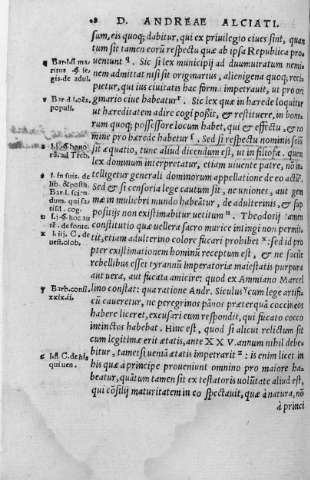 28 D. ANDREAE ALCIATI.
sum, eis quoq; dabitur, qui ex priuilegio ciues sint, quan
tum sit tamen eorū respectu quæ ab ipsa Republica pro=
ueniunt q. Sic si lex municipij ad duumuiratum nemi=
nem admittat nisi sit originarius, alienigena quoq; reci=
pietur, qui ius ciuitatis hac forma impetrauit, ut pro ori
ginario ciue habeatur r. Sic lex quæ in hærede loquitur
ut hæreditatem adire cogi possit, & restituere, in bono=
rum quoq; possessore locum habet, qui & effectu, & no
mine pro hærede habetur s. Sed si respectu nominis sem
sit æquatio, tunc aliud dicendum est, ut in filiofa. quem
lex dominum interpretatur, etiam uiuente patre, nō in=
telligetur generali dominorum appellatione de eo actū t.
Sed & si censoria lege cautum sit, ne uniones, aut gem
mæ in muliebri mundo habeātur, de adulterinis, & sup
positijs non existimabitur uetitum u. Theodorij tamen
constitutio quæ uellera sacro murice intingi non permit=
tit, etiam adulterino colore fucari prohibet x: sed id pro
pter existimationem hominū receptum est, & ne facile
rebellibus esset tyrannū Imperatoriæ maiestatis purpura
aut uera, aut fucata amicire: quod ex Ammiano Marcel
lino constat: quaratione Andr. Siculus y cum lege artifi=
cij caueretur, ne peregrinos pānos præterquā coccineos
habere liceret, excusari eum respondit, qui fucato cocco
intinctos habebat. Hinc est, quod si alicui relictum sit
cum legitimæ erit ætatis, ante XXV. annum nihil debe=
bitur, tametsi uentā ætatis impetrarit z: is enim licet in
his quæ à principe proueniunt omnino pro maiore ha=
beatur, quātum tamen sit ex testatoris uolūtate aliud est,
qui cōsilij maturitatem in eo spectauit, quæ à natura, nō
à princi